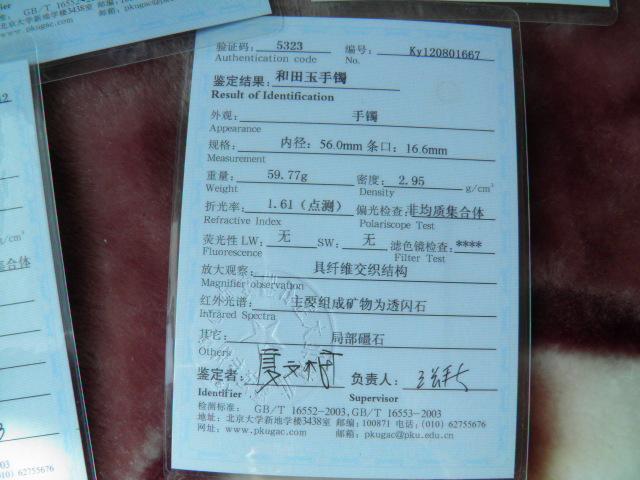 Identifier
检测标准: GB/T 16552
北京大学新地学楼3438室
www.pkugac.com
邮箱: pkugac@p
g/cm³
集合体
(010) 62755676
验证码: 5323 编号: Ky120801667
Authentication code No.
鉴定结果: 和田玉手镯
Result of Identification
外观: 手镯
Appearance
规格: 内径: 56.0mm 条口: 16.6mm
Measurement
重量: 59.77g 密度: 2.95 g/cm³
Weight Density
折光率: 1.61 (点测) 偏光检查: 非均质集合体
Refractive Index Polariscope Test
荧光性 LW: 无 SW: 无 滤色镜检查: ****
Fluorescence Filter Test
放大观察: 具纤维交织结构
Magnifier observation
红外光谱: 主要组成矿物为透闪石
Infrared Spectra
其它: 局部礓石
Others
鉴定者: 负责人:
Identifier Supervisor
检测标准: GB/T 16552-2003, GB/T 16553-2003
地址: 北京大学新地学楼3438室 邮编: 100871 电话: (010) 62755676
网址: www.pkugac.com 邮箱: pkugac@pku.edu.cn